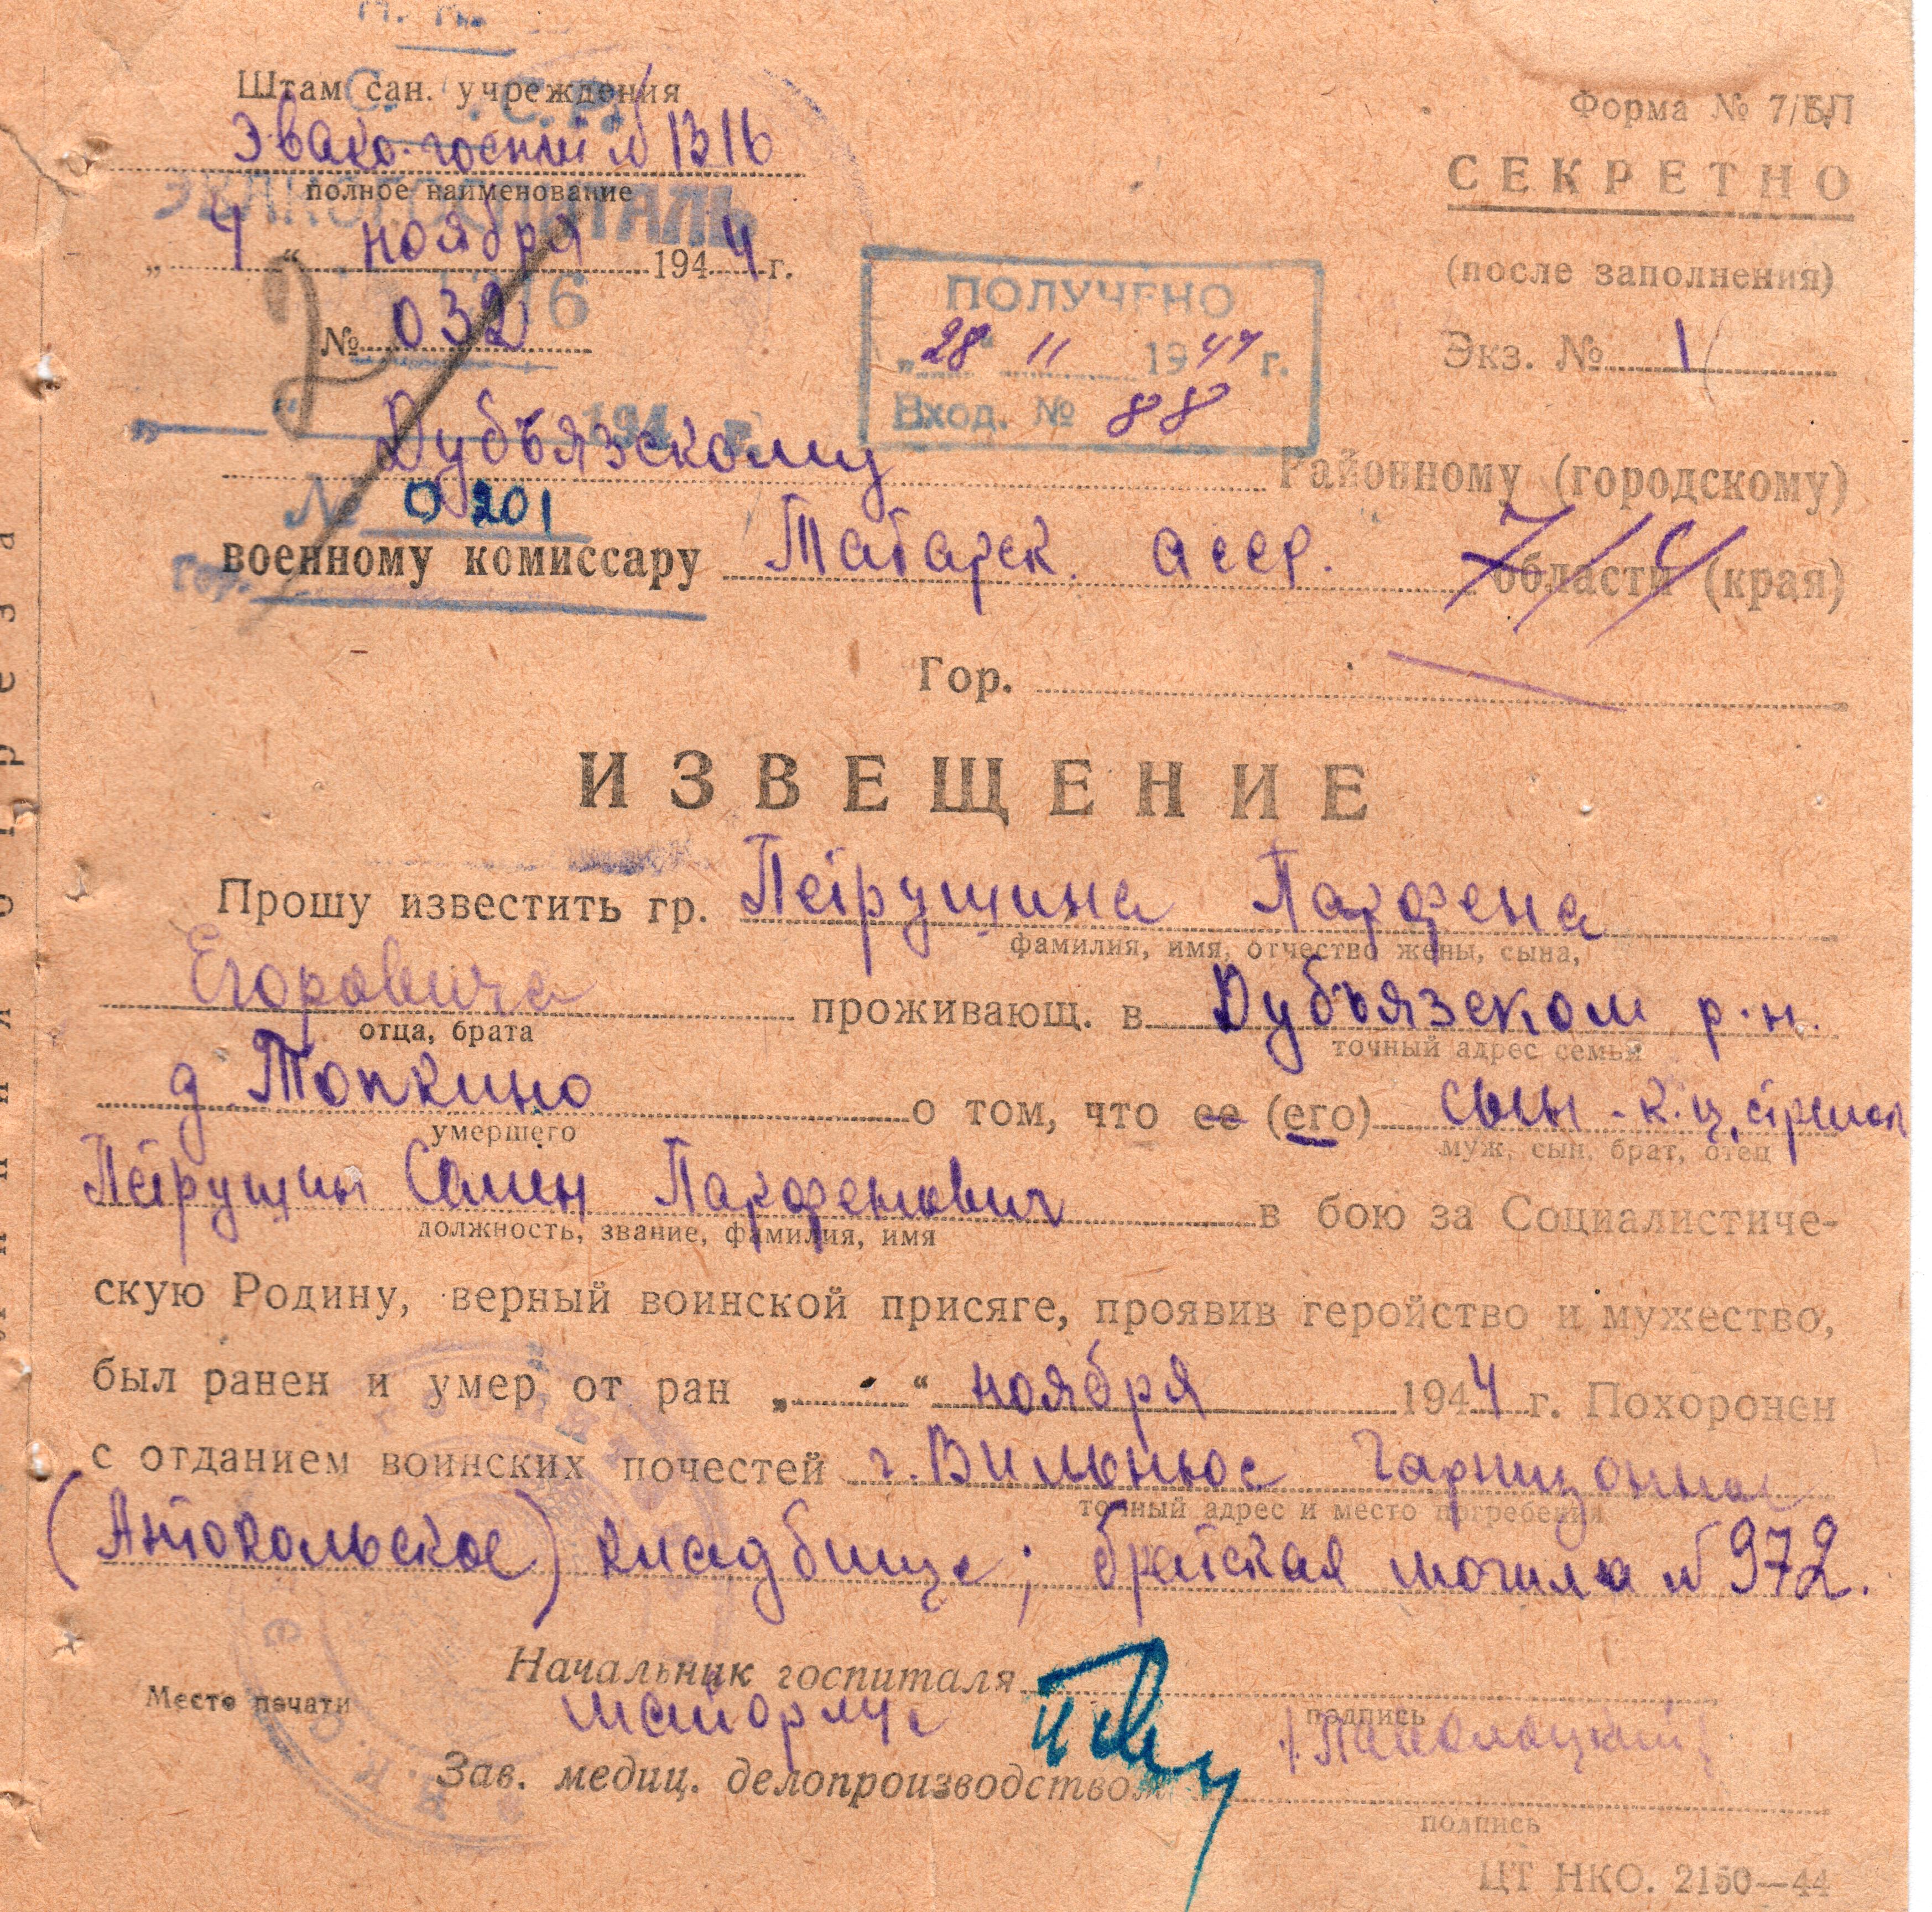 Штам сан. учреждения
Форма № 7/БП
Эвако-госпит № 1316
СЕКРЕТНО
полное наименование
ЭВАКОГОСПИТАЛЬ
„ 4 “ ноября 1944 г.
(после заполнения)
1316
№ 032
ПОЛУЧЕНО
„28“ 11 1944 г.
Вход. № 88
Экз. № 1
2
„ “ 194 г.
Дубъязскому Районному (городскому)
№ 0201
военному комиссару Татарск. асср. области (края)
гор.
Гор.
ИЗВЕЩЕНИЕ
Прошу известить гр. Петрушина Парфена
фамилия, имя, отчество жены, сына,
Егоровича проживающ. в Дубъязском р.н.
отца, брата
точный адрес семьи
д Топкино о том, что ее (его) сын - к-ц, стрелок
умершего
муж, сын, брат, отец
Петрушин Семен Парфенович в бою за Социалистиче-
должность, звание, фамилия, имя
скую Родину, верный воинской присяге, проявив геройство и мужество,
был ранен и умер от ран „ - “ ноября 1944 г. Похоронен
с отданием воинских почестей г. Вильнюс Гарнизонное
точный адрес и место погребения
(Антокольское) кладбище; братская могила № 972.
Начальник госпиталя
подпись
Место печати
майор м/с
Зав. медиц. делопроизводством
подпись
ЦТ НКО. 2150—44